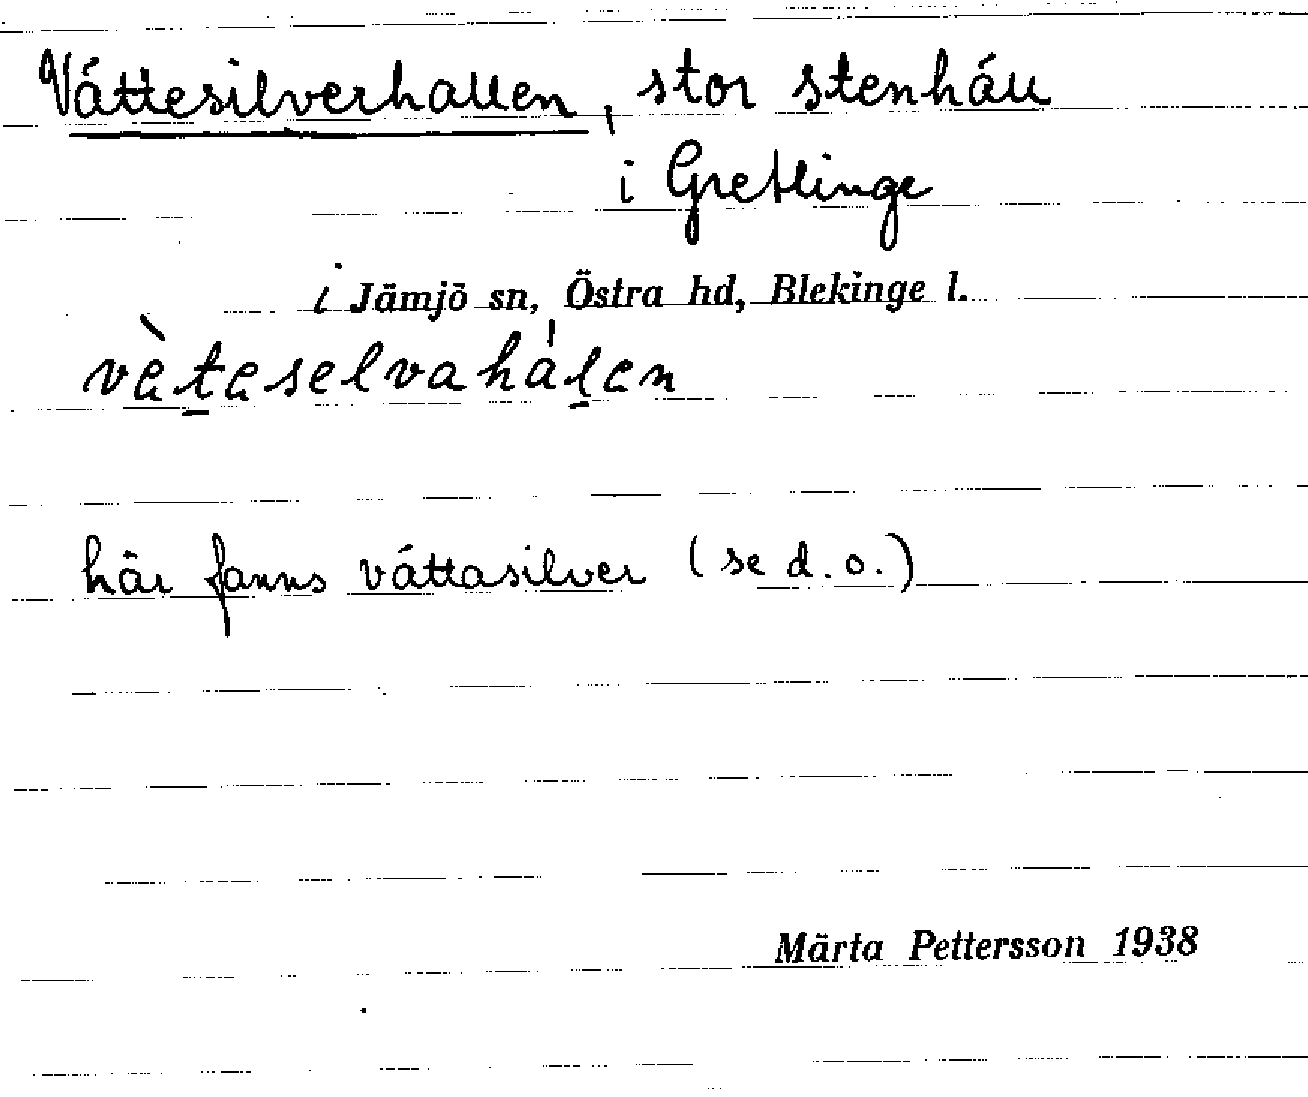 Vättesilverhallen, stor stenhäll
i Gretlinge
i Jämjö sn, Östra hd, Blekinge l.
vètaselvahálen
här fanns vättasilver (se d. o.)
Märta Pettersson 1938